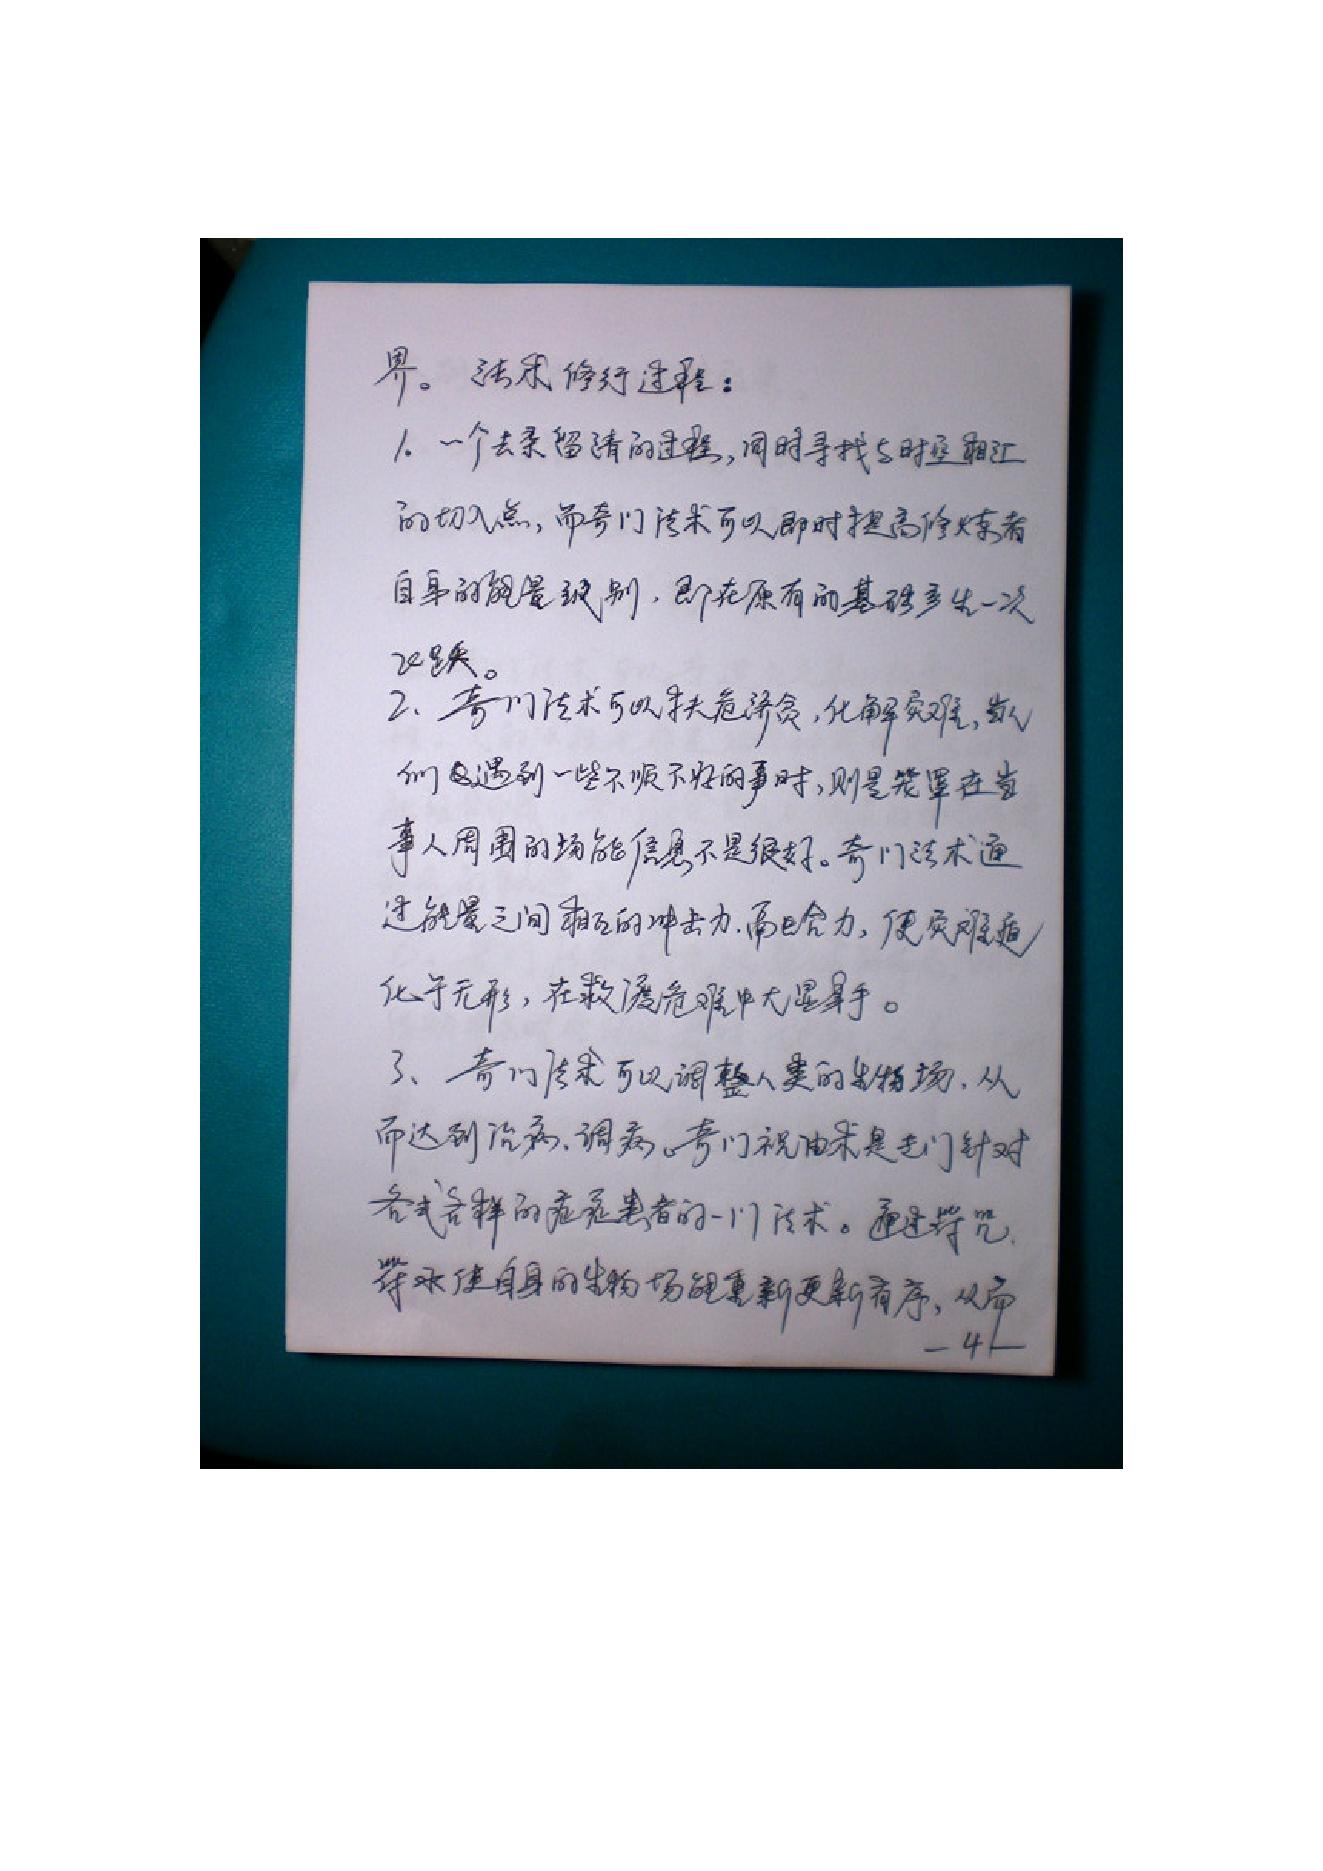 界。法术修行过程：
1.一个去柔留清的过程，同时寻找与时空相汇
的切入点，而奇门法术可以即时提高修炼者
自身的能量级别，即在原有的基础产生一次
飞跃。
2、奇门法术可以扶危济贫，化解灾难，当人
们遇到一些不顺不好的事时，则是笼罩在当
事人周围的场能信息不是很好。奇门法术通
过能量之间相互的冲击力、合力，使灾难遁
化于无形，在救渡危难中大显身手。
3、奇门法术可以调整人类的生物场，从
而达到治病、调病。奇门祝由术是专门针对
各式各样的症患者的一门法术。通过符咒、
符水使自身的生物场能重新更新有序，从而
—4—